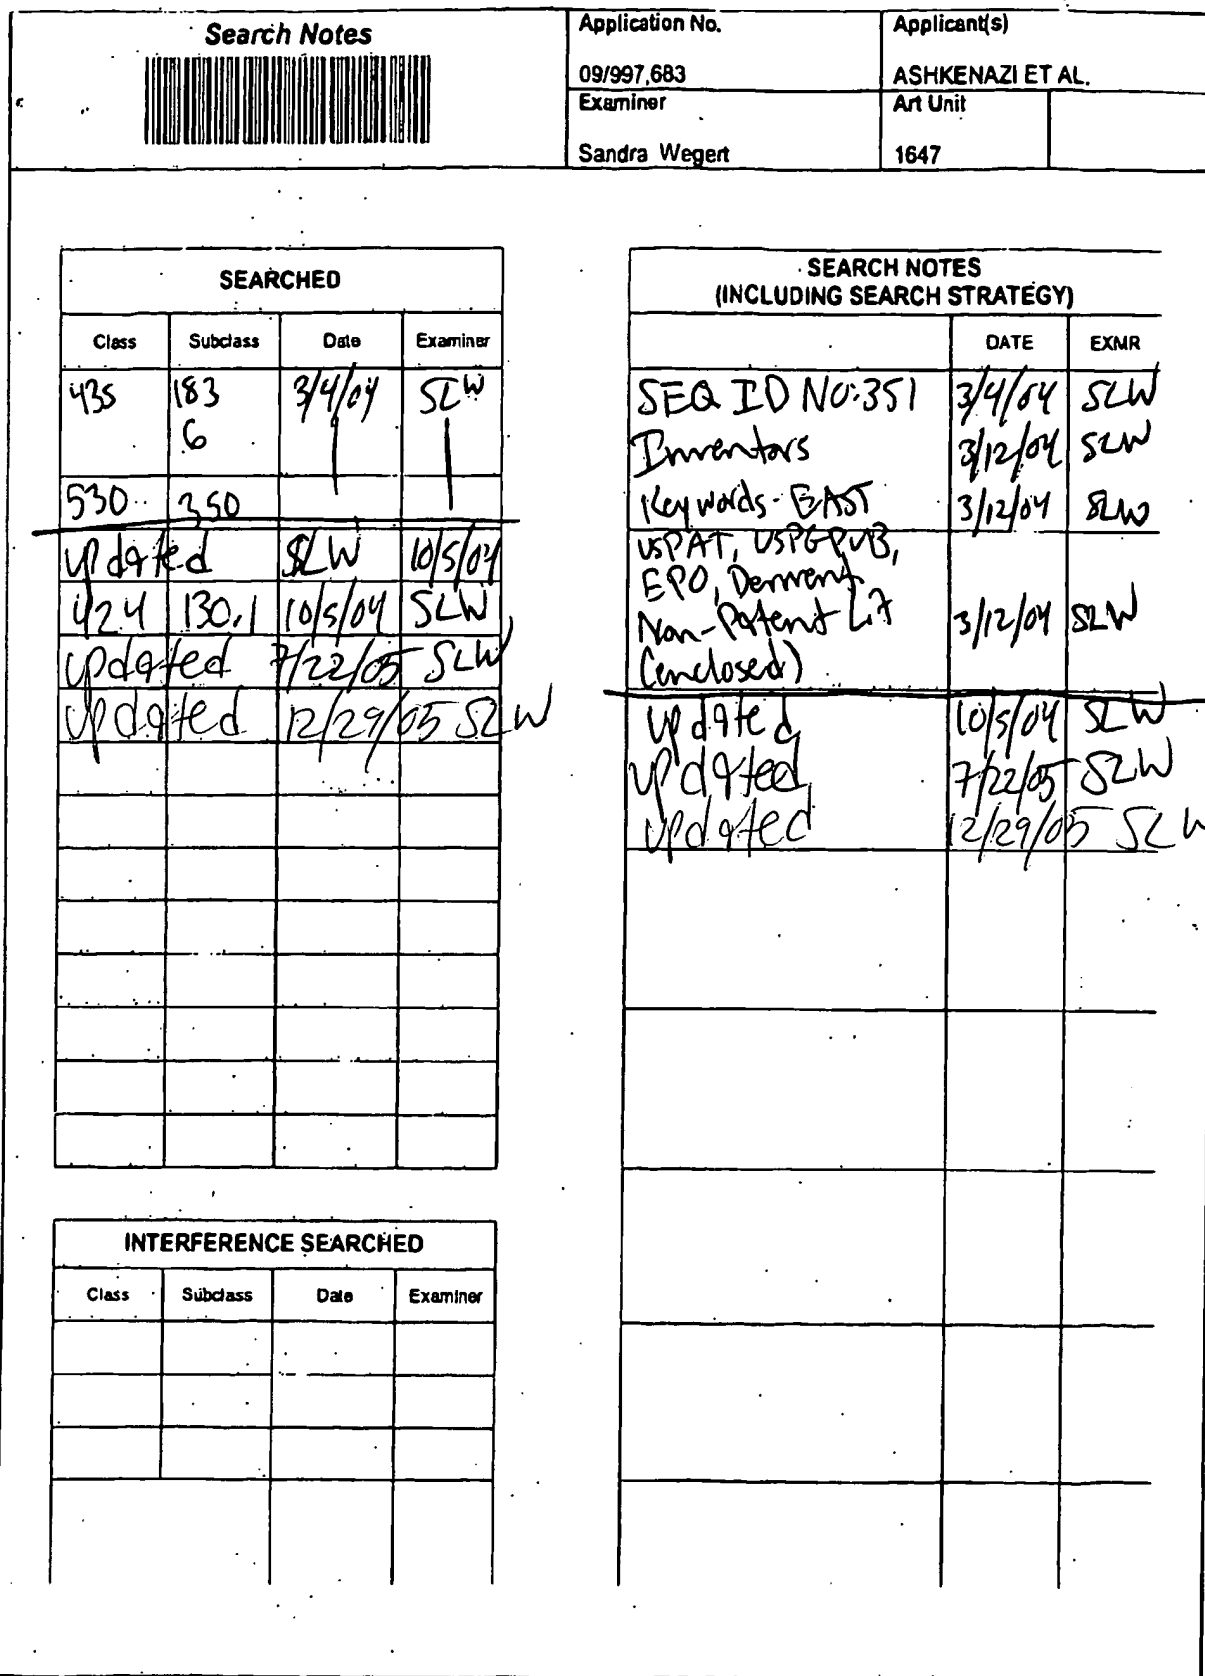 Search Notes
Application No.
Applicant(s)
09/997,683
ASHKENAZI ET AL.
Examiner
Art Unit
Sandra Wegert
1647
SEARCHED
Class Subclass Date Examiner
435 183 3/4/04 SLW
6
530 350
updated SLW 10/5/04
424 130.1 10/5/04 SLW
updated 7/22/05 SLW
updated 12/29/05 SLW
INTERFERENCE SEARCHED
Class Subclass Date Examiner
SEARCH NOTES
(INCLUDING SEARCH STRATEGY)
DATE EXMR
SEQ ID NO:351 3/4/04 SLW
Inventors 3/12/04 SLW
Key words - EAST 3/12/04 SLW
USPAT, USPGPUB,
EPO, Derwent
Non-Patent Lit 3/12/04 SLW
(enclosed)
updated 10/5/04 SLW
updated 7/22/05 SLW
updated 12/29/05 SLW